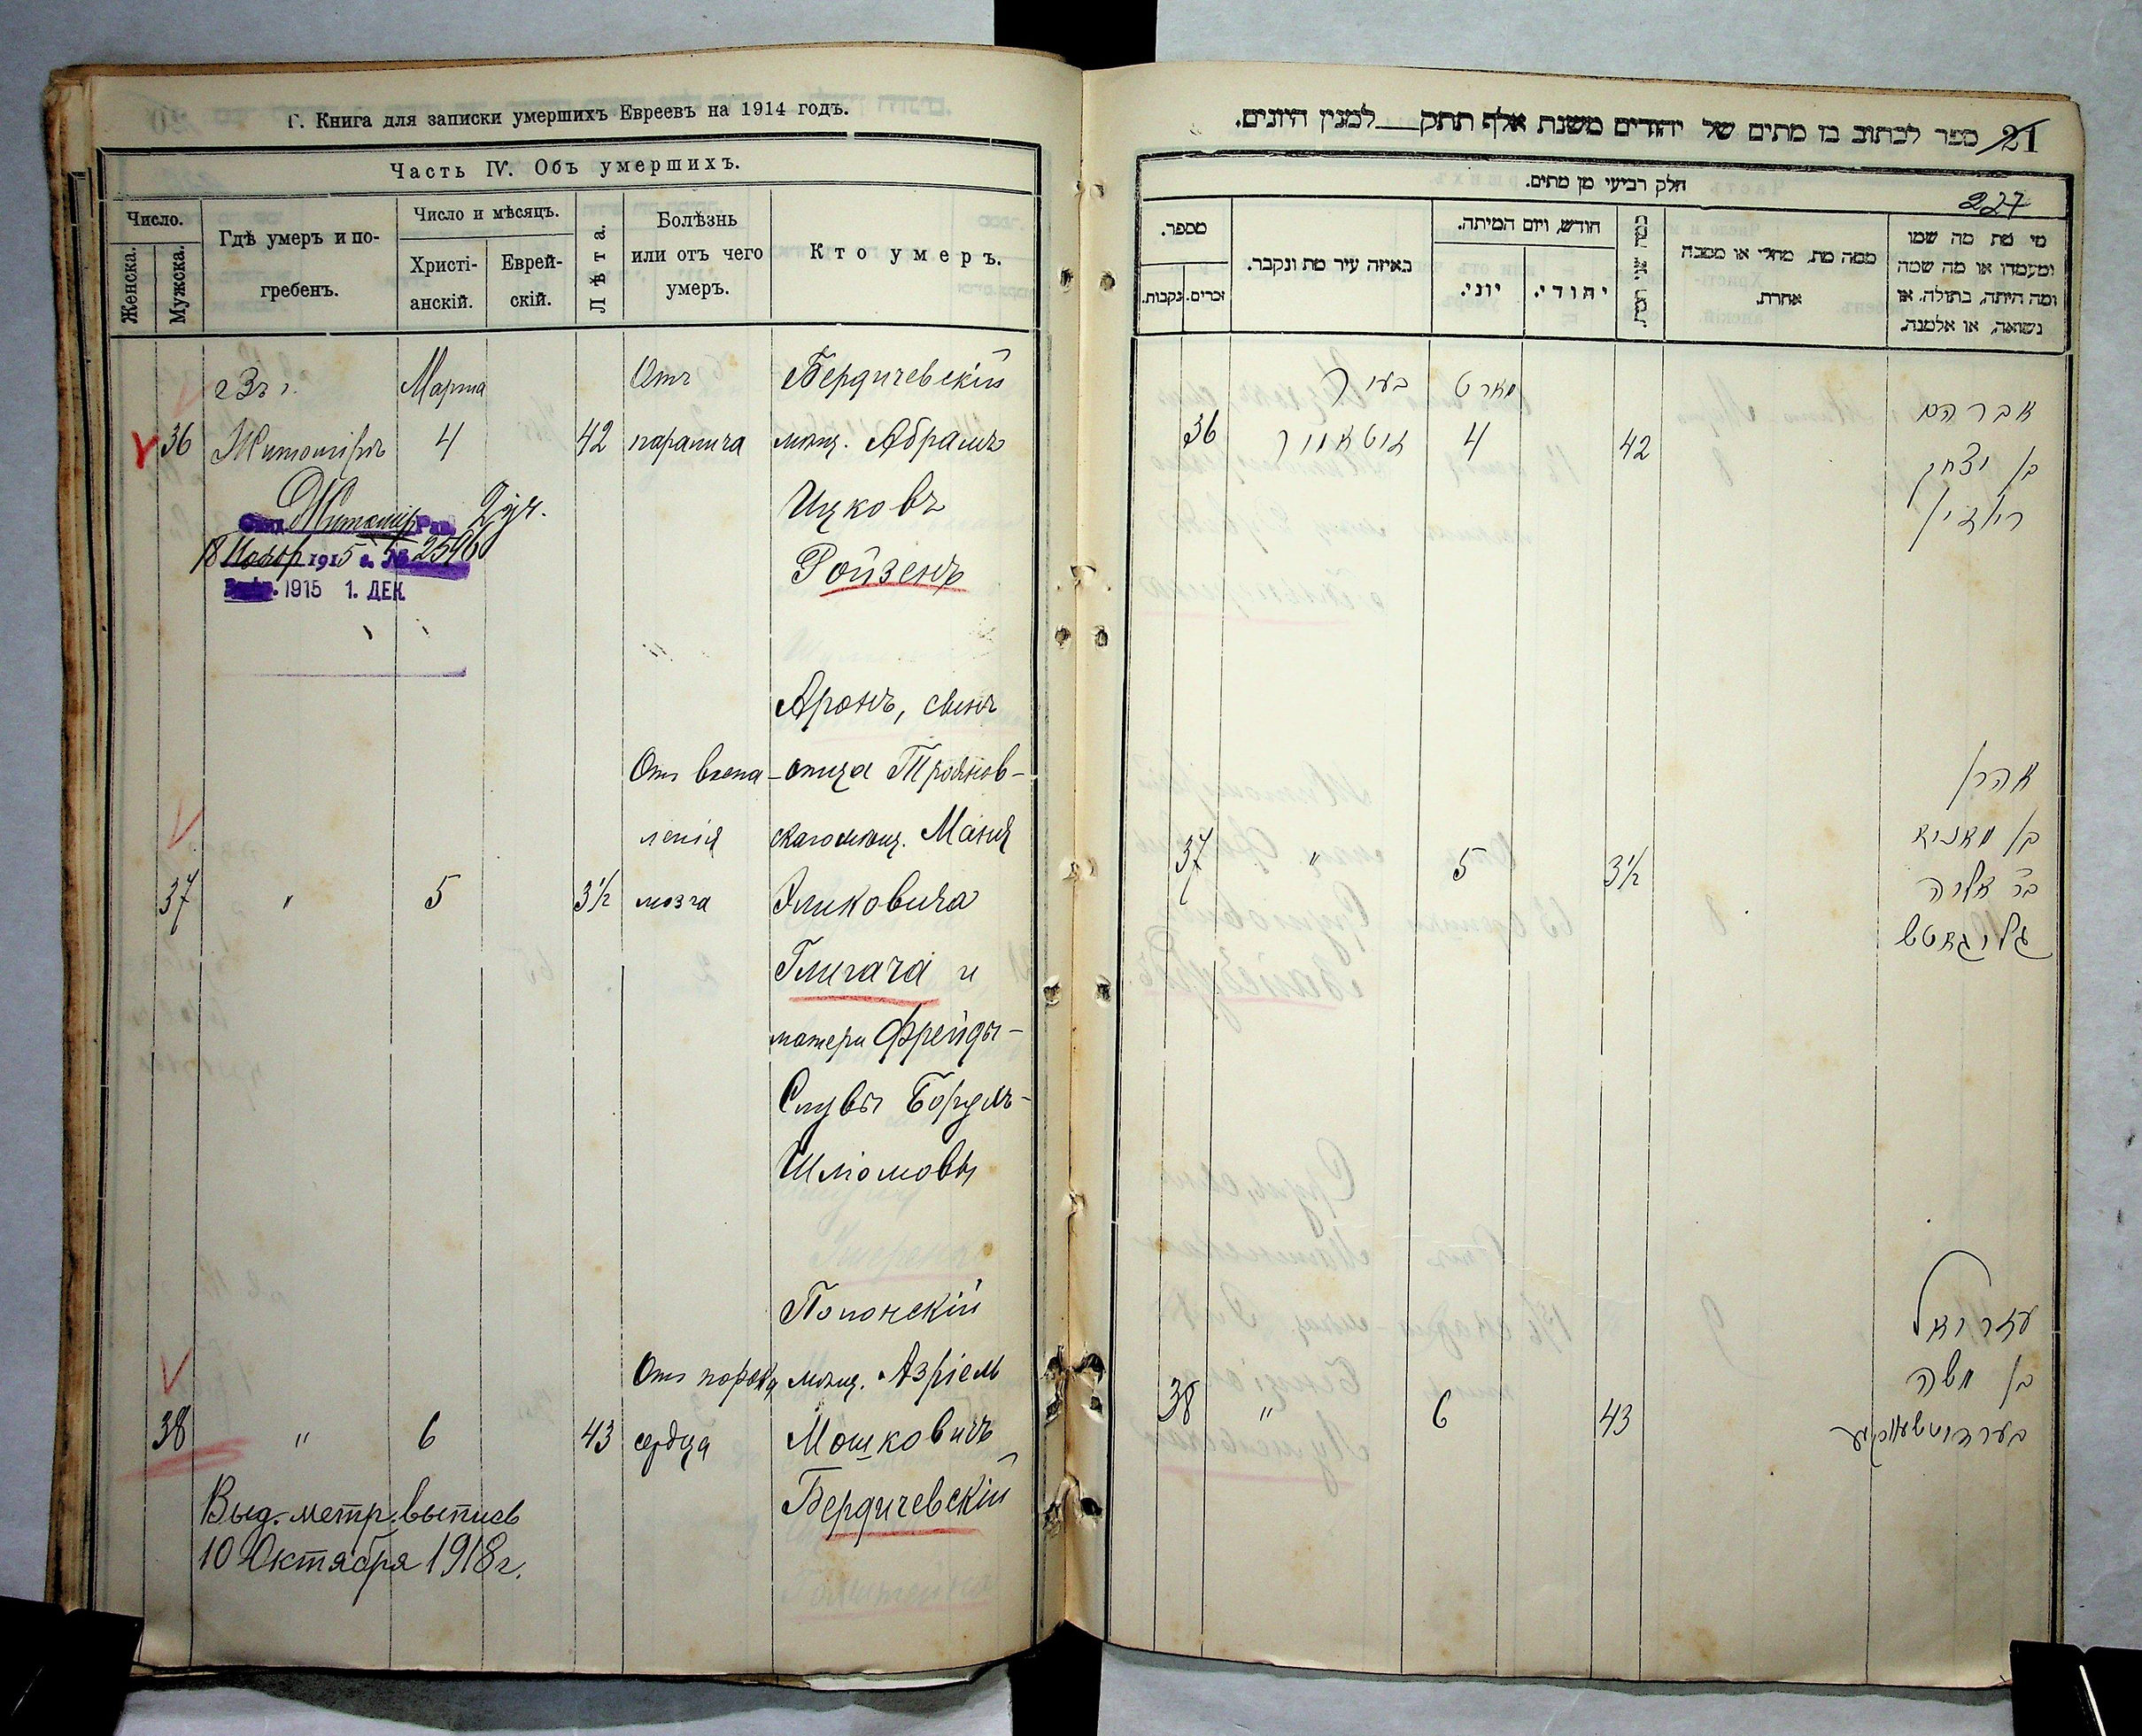 Г. Книга для записки умершихъ Евреевъ на 1914 годъ.
Часть IV. Объ умершихъ.
Число.
Женска.
Мужска.
Гдѣ умеръ и по-
гребенъ.
Число и мѣсяцъ.
Христі-
анскій.
Еврей-
скій.
Лѣта.
Болѣзнь
или отъ чего
умеръ.
Кто умеръ.
Марта Отъ Бердичевскій
36 Житомiръ 4 42 паралича мѣщ. Абрамъ
Ицковъ
Ройзенъ
Житомiр Рав. 2 уч.
18 Нояб 1915 г. № 2596
1915 1. ДЕК.
Аронъ, сынъ
Отъ воспа- отца Троянов-
ленія скаго мѣщ. Маня
37 " 5 3½ мозга Эликовича
Глигача и
матери Фрейды-
Слувы Борухъ-
Шліомовы
Полонскій
Отъ порока мѣщ. Азріель
38 " 6 43 сердца Мошковичъ
Бердичевскій
Выд. метр. выпись
10 Октября 1918 г.
21 ספר לכתוב בו מתים של יהודים משנת אלף תתק למנין היונים.
חלק רביעי מן מתים.
227
מספר.
נקבות.
זכרים.
באיזה עיר מת ונקבר.
חודש, ויום המיתה.
יוני.
יהודי.
ממה מת, מחלי או מסבה
אחרת.
מי מת מה שמו
ומעמדו או מה שמה
ומה היתה, בתולה, או
נשואה, או אלמנה.
בעיר מארט אברהם
36 זיטאמיר 4 42 בן יצחק
רויזין
אהרן
בן מאניא
37 " 5 3½ בר אליה
גליגאטש
עזריאל
בן משה
38 " 6 43
בערדיטשעווסקי